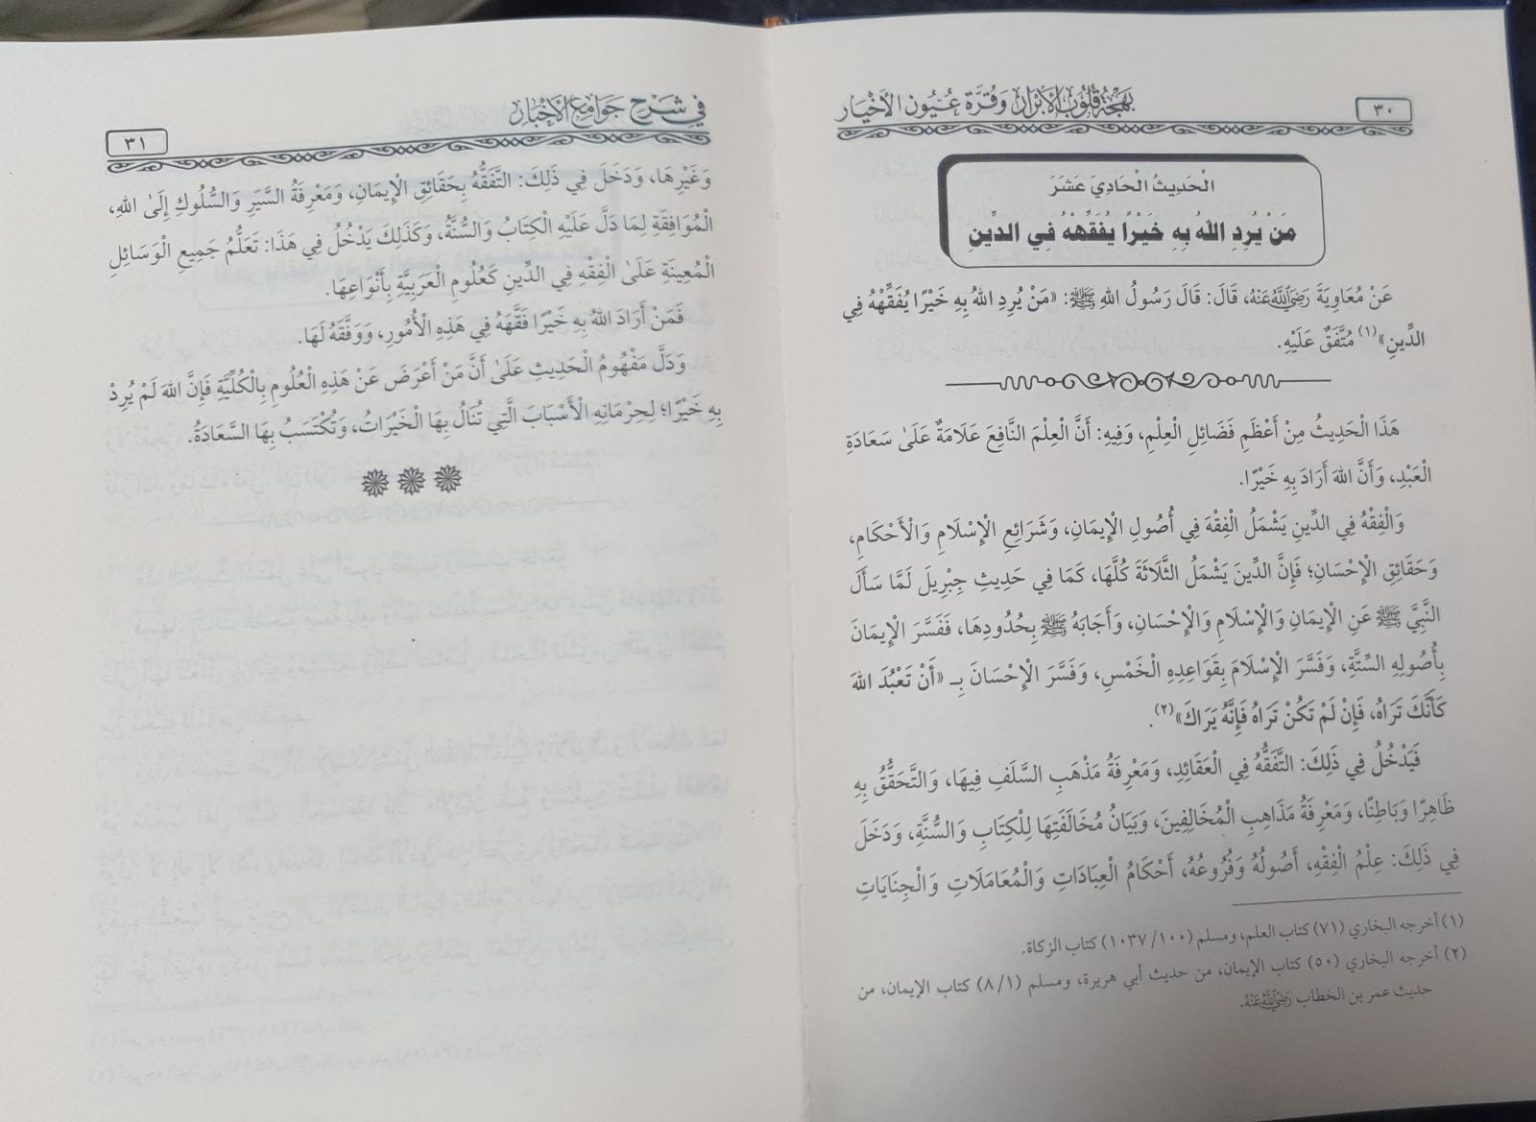 ٣٠
بَهْجَةُ قُلُوبِ الأَبْرَارِ وَقُرَّةُ عُيُونِ الأَخْيَارِ
الْحَدِيثُ الْحَادِيَ عَشَرَ
مَنْ يُرِدِ اللهُ بِهِ خَيْرًا يُفَقِّهْهُ فِي الدِّينِ
عَنْ مُعَاوِيَةَ رَضِيَ اللهُ عَنْهُ، قَالَ: قَالَ رَسُولُ اللهِ ﷺ: «مَنْ يُرِدِ اللهُ بِهِ خَيْرًا يُفَقِّهْهُ فِي
الدِّينِ»(١) مُتَّفَقٌ عَلَيْهِ.
هَذَا الْحَدِيثُ مِنْ أَعْظَمِ فَضَائِلِ الْعِلْمِ، وَفِيهِ: أَنَّ الْعِلْمَ النَّافِعَ عَلَامَةٌ عَلَىٰ سَعَادَةِ
الْعَبْدِ، وَأَنَّ اللهَ أَرَادَ بِهِ خَيْرًا.
وَالْفِقْهُ فِي الدِّينِ يَشْمَلُ الْفِقْهَ فِي أُصُولِ الْإِيمَانِ، وَشَرَائِعِ الْإِسْلَامِ وَالْأَحْكَامِ،
وَحَقَائِقِ الْإِحْسَانِ؛ فَإِنَّ الدِّينَ يَشْمَلُ الثَّلَاثَةَ كُلَّهَا، كَمَا فِي حَدِيثِ جِبْرِيلَ لَمَّا سَأَلَ
النَّبِيَّ ﷺ عَنِ الْإِيمَانِ وَالْإِسْلَامِ وَالْإِحْسَانِ، وَأَجَابَهُ ﷺ بِحُدُودِهَا، فَفَسَّرَ الْإِيمَانَ
بِأُصُولِهِ السِّتَّةِ، وَفَسَّرَ الْإِسْلَامَ بِقَوَاعِدِهِ الْخَمْسِ، وَفَسَّرَ الْإِحْسَانَ بِـ «أَنْ تَعْبُدَ اللهَ
كَأَنَّكَ تَرَاهُ، فَإِنْ لَمْ تَكُنْ تَرَاهُ فَإِنَّهُ يَرَاكَ»(٢).
فَيَدْخُلُ فِي ذَلِكَ: التَّفَقُّهُ فِي الْعَقَائِدِ، وَمَعْرِفَةُ مَذْهَبِ السَّلَفِ فِيهَا، وَالتَّحَقُّقُ بِهِ
ظَاهِرًا وَبَاطِنًا، وَمَعْرِفَةُ مَذَاهِبِ الْمُخَالِفِينَ، وَبَيَانُ مُخَالَفَتِهَا لِلْكِتَابِ وَالسُّنَّةِ، وَدَخَلَ
فِي ذَلِكَ: عِلْمُ الْفِقْهِ، أُصُولُهُ وَفُرُوعُهُ، أَحْكَامُ الْعِبَادَاتِ وَالْمُعَامَلَاتِ وَالْجِنَايَاتِ
(١) أخرجه البخاري (٧١) كتاب العلم، ومسلم (١٠٣٧/١٠٠) كتاب الزكاة.
(٢) أخرجه البخاري (٥٠) كتاب الإيمان، من حديث أبي هريرة، ومسلم (٨/١) كتاب الإيمان، من
حديث عمر بن الخطاب رَضِيَ اللهُ عَنْهُ.
فِي شَرْحِ جَوَامِعِ الأَخْبَارِ
٣١
وَغَيْرِهَا، وَدَخَلَ فِي ذَلِكَ: التَّفَقُّهُ بِحَقَائِقِ الْإِيمَانِ، وَمَعْرِفَةُ السَّيْرِ وَالسُّلُوكِ إِلَىٰ اللهِ،
الْمُوَافِقَةِ لِمَا دَلَّ عَلَيْهِ الْكِتَابُ وَالسُّنَّةُ، وَكَذَلِكَ يَدْخُلُ فِي هَذَا: تَعَلُّمُ جَمِيعِ الْوَسَائِلِ
الْمُعِينَةِ عَلَىٰ الْفِقْهِ فِي الدِّينِ كَعُلُومِ الْعَرَبِيَّةِ بِأَنْوَاعِهَا.
فَمَنْ أَرَادَ اللهُ بِهِ خَيْرًا فَقَّهَهُ فِي هَذِهِ الْأُمُورِ، وَوَفَّقَهُ لَهَا.
وَدَلَّ مَفْهُومُ الْحَدِيثِ عَلَىٰ أَنَّ مَنْ أَعْرَضَ عَنْ هَذِهِ الْعُلُومِ بِالْكُلِّيَّةِ فَإِنَّ اللهَ لَمْ يُرِدْ
بِهِ خَيْرًا؛ لِحِرْمَانِهِ الْأَسْبَابَ الَّتِي تُنَالُ بِهَا الْخَيْرَاتُ، وَتُكْتَسَبُ بِهَا السَّعَادَةُ.